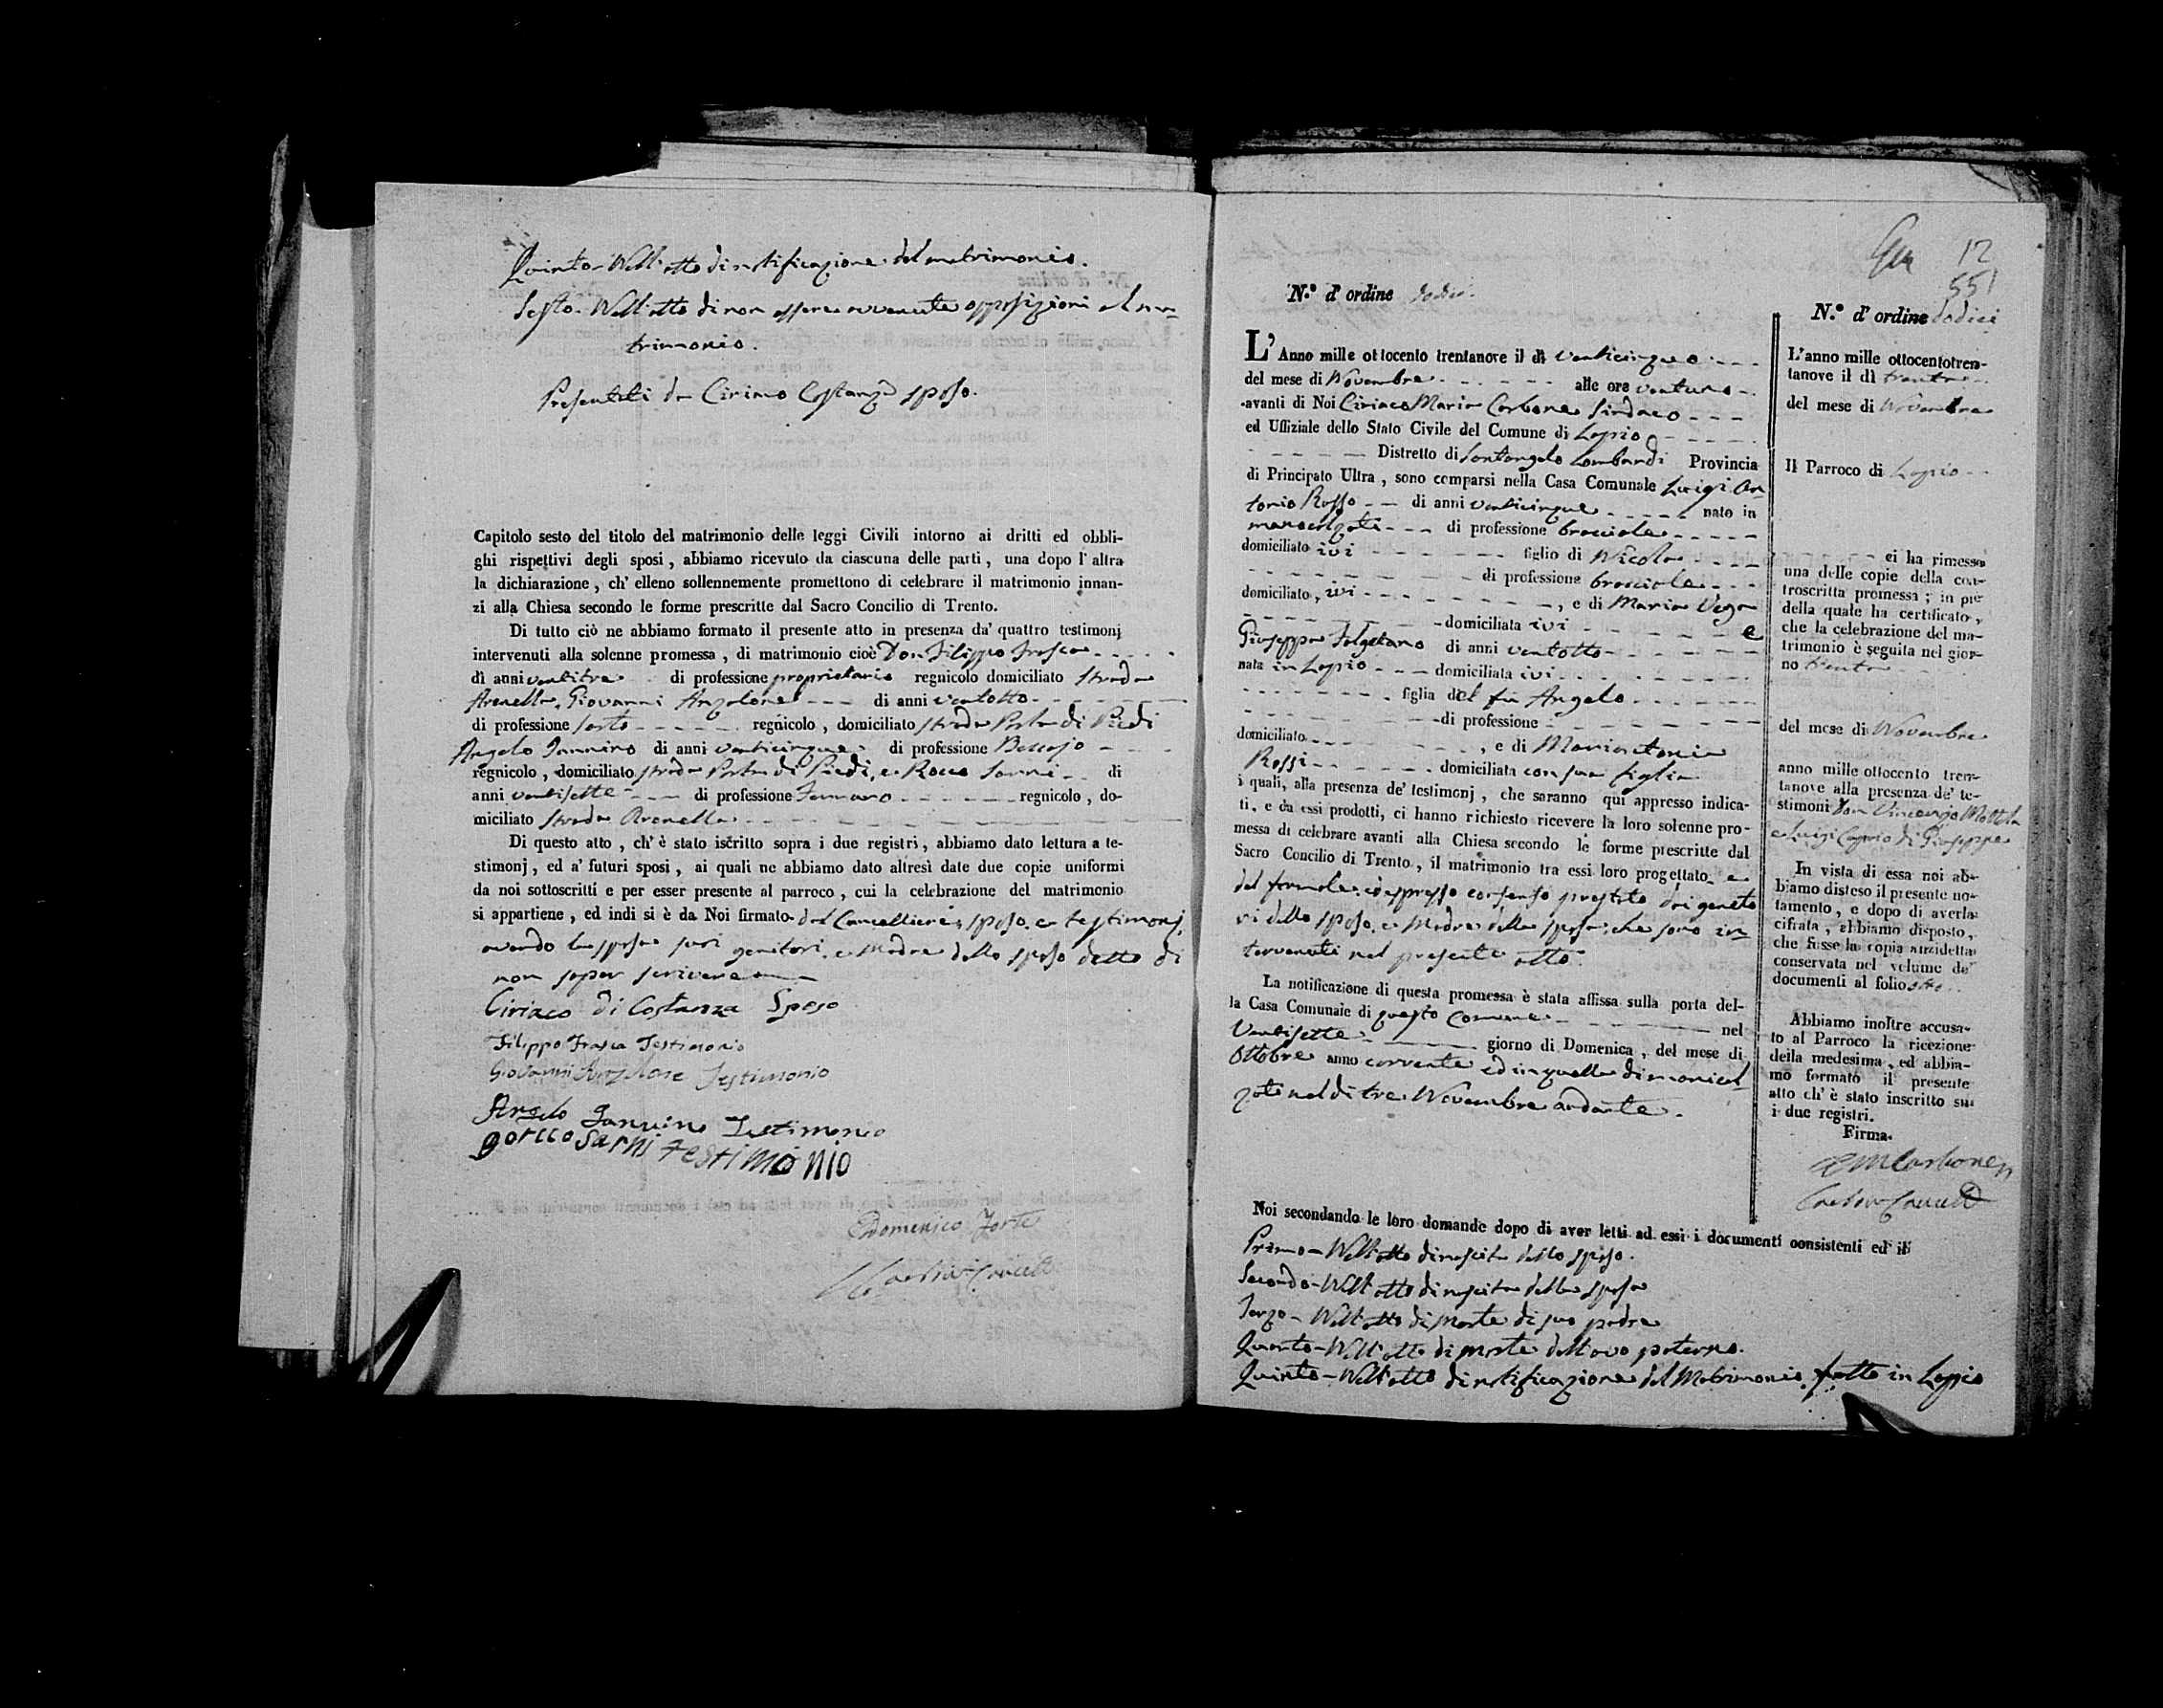 Quinto - Nell'atto di notificazione del matrimonio.
Sesto - Nell'atto di non essere avvenute opposizioni al ma-
trimonio.
Presentati da Ciriaco Costanza sposo.
Capitolo sesto del titolo del matrimonio delle leggi Civili intorno ai dritti ed obbli-
ghi rispettivi degli sposi, abbiamo ricevuto da ciascuna delle parti, una dopo l'altra
la dichiarazione, ch'elleno sollennemente promettono di celebrare il matrimonio innan-
zi alla Chiesa secondo le forme prescritte dal Sacro Concilio di Trento.
Di tutto ciò ne abbiamo formato il presente atto in presenza da' quattro testimonj
intervenuti alla solenne promessa, di matrimonio cioè Don Filippo Frasca
di anni ventitre di professione proprietario regnicolo domiciliato strada
Arenella, Giovanni Anzalone di anni ventotto
di professione sarto regnicolo, domiciliato strada Porta di Piedi
Angelo Iannino di anni venticinque di professione Beccajo
regnicolo, domiciliato strada Porta di Piedi, e Rocco Sarni di
anni ventisette di professione Ferraro regnicolo, do-
miciliato strada Arenella
Di questo atto, ch'è stato iscritto sopra i due registri, abbiamo dato lettura a te-
stimonj, ed a' futuri sposi, ai quali ne abbiamo dato altresì date due copie uniformi
da noi sottoscritti e per esser presente al parroco, cui la celebrazione del matrimonio
si appartiene, ed indi si è da Noi firmato dal Cancelliere, sposo, e testimonj,
avendo la sposa suoi genitori, e Madre dello sposo detto di
non saper scrivere
Ciriaco di Costanza Sposo
Filippo Frasca Testimonio
Giovanni Anzalone Testimonio
Angelo Iannino Testimonio
Sarni testimonio
Domenico Forte
12
551
N.º d'ordine dodici
L'Anno mille ottocento trentanove il dì venticinque
del mese di Novembre alle ore ventuno
avanti di Noi Ciriaco Maria Carbone Sindaco
ed Uffiziale dello Stato Civile del Comune di Lapio
Distretto di Santangelo Lombardi Provincia
di Principato Ultra, sono comparsi nella Casa Comunale Luigi An-
tonio Rosso di anni venticinque nato in
manocalzati di professione bracciale
domiciliato ivi figlio di Nicola
di professione bracciale
domiciliato, ivi, e di Maria Vega
domiciliata ivi e
Giuseppa Folgetano di anni ventotto
nata in Lapio domiciliata ivi
figlia del fu Angelo
di professione
domiciliato, e di Mariantonia
Rossi domiciliata con sua figlia
i quali, alla presenza de' testimonj, che saranno qui appresso indica-
ti, e da essi prodotti, ci hanno richiesto ricevere la loro solenne pro-
messa di celebrare avanti alla Chiesa secondo le forme prescritte dal
Sacro Concilio di Trento, il matrimonio tra essi loro progettato e
dal formale, ed espresso consenso prestato dai genito
ri dello sposo, e Madre della sposa, che sono in-
tervenuti nel presente atto.
La notificazione di questa promessa è stata affissa sulla porta del-
la Casa Comunale di questo Comune nel
Ventisette giorno di Domenica, del mese di
Ottobre anno corrente ed in quella di manocal-
zati nel dì tre Novembre andante.
Noi secondando le loro domande dopo di aver letti ad essi i documenti consistenti ed il
Primo - Nell'atto di nascita dello sposo.
Secondo - Nell'atto di nascita della sposa
Terzo - Nell'atto di morte di suo padre
Quarto - Nell'atto di morte dell'avo paterno.
Quinto - Nell'atto di notificazione del Matrimonio, fatto in Lapio
N.º d'ordine dodici
L'anno mille ottocentotren-
tanove il dì trenta
del mese di Novembre
Il Parroco di Lapio
ci ha rimesso
una delle copie della con-
troscritta promessa; in piè
della quale ha certificato,
che la celebrazione del ma-
trimonio è seguita nel gior-
no trenta
del mese di Novembre
anno mille ottocento tren-
tanove alla presenza de' te-
stimoni Don Vincenzo Mottola
e Luigi Caprio di Giuseppe
In vista di essa noi ab-
biamo disteso il presente no-
tamento, e dopo di averla
cifrata, abbiamo disposto,
che fusse la copia anzidetta
conservata nel volume de'
documenti al folio
Abbiamo inoltre accusa-
to al Parroco la ricezione
della medesima, ed abbia-
mo formato il presente
atto ch'è stato inscritto su
i due registri.
Firma.
CM Carbone